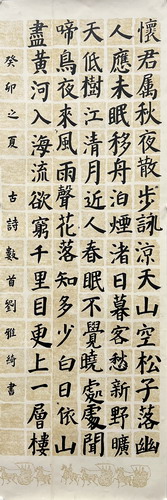 懷君屬秋夜散步詠涼天山空松子落幽
人應未眠移舟泊煙渚日暮客愁新野曠
天低樹江清月近人春眠不覺曉處處聞
啼鳥夜來風雨聲花落知多少白日依山
盡黃河入海流欲窮千里目更上一層樓
癸卯之夏 古詩數首劉雅綺書